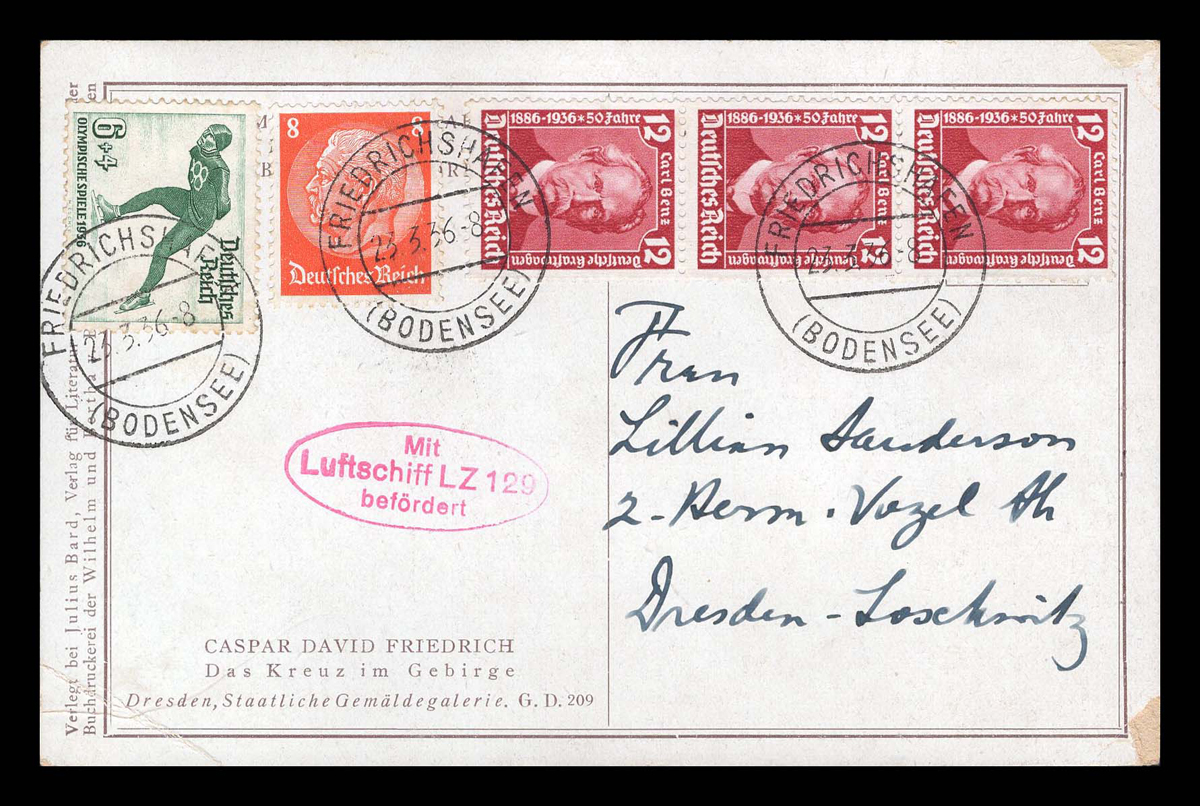 6+4
OLYMPISCHE SPIELE 1936
Deutsches
Reich
8 8
Deutsches Reich
1886-1936 * 50 Jahre
12 Carl Benz 12
Deutsches Reich
Deutsche Kraftwagen
1886-1936 * 50 Jahre
12 Carl Benz 12
Deutsches Reich
Deutsche Kraftwagen
1886-1936 * 50 Jahre
12 Carl Benz 12
Deutsches Reich
Deutsche Kraftwagen
FRIEDRICHSHAFEN
23.3.36-8
(BODENSEE)
FRIEDRICHSHAFEN
23.3.36-8
(BODENSEE)
FRIEDRICHSHAFEN
23.3.36-8
(BODENSEE)
Mit
Luftschiff LZ 129
befördert
Frau
Lillian Sanderson
2 - Herm. Vogel Str
Dresden - Loschwitz
CASPAR DAVID FRIEDRICH
Das Kreuz im Gebirge
Dresden, Staatliche Gemäldegalerie. G. D. 209
Verlegt bei Julius Bard, Verlag für Literatur
Buchdruckerei der Wilhelm und